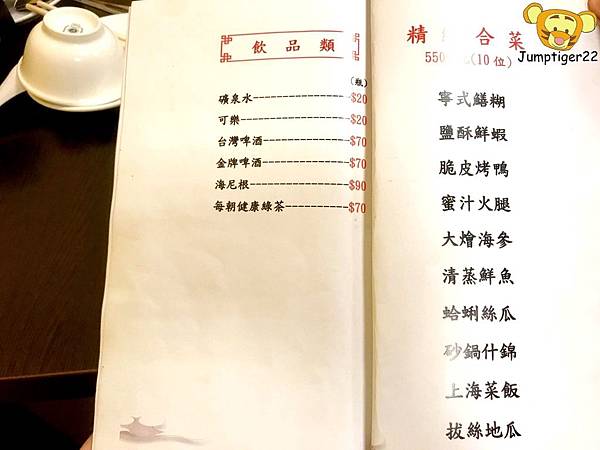 飲品類
(瓶)
礦泉水-----------------$20
可樂-------------------$20
台灣啤酒---------------$70
金牌啤酒---------------$70
海尼根-----------------$90
每朝健康綠茶-----------$70
精 合菜
550 (10位)
寧式鱔糊
鹽酥鮮蝦
脆皮烤鴨
蜜汁火腿
大燴海參
清蒸鮮魚
蛤蜊絲瓜
砂鍋什錦
上海菜飯
拔絲地瓜
Jumptiger22